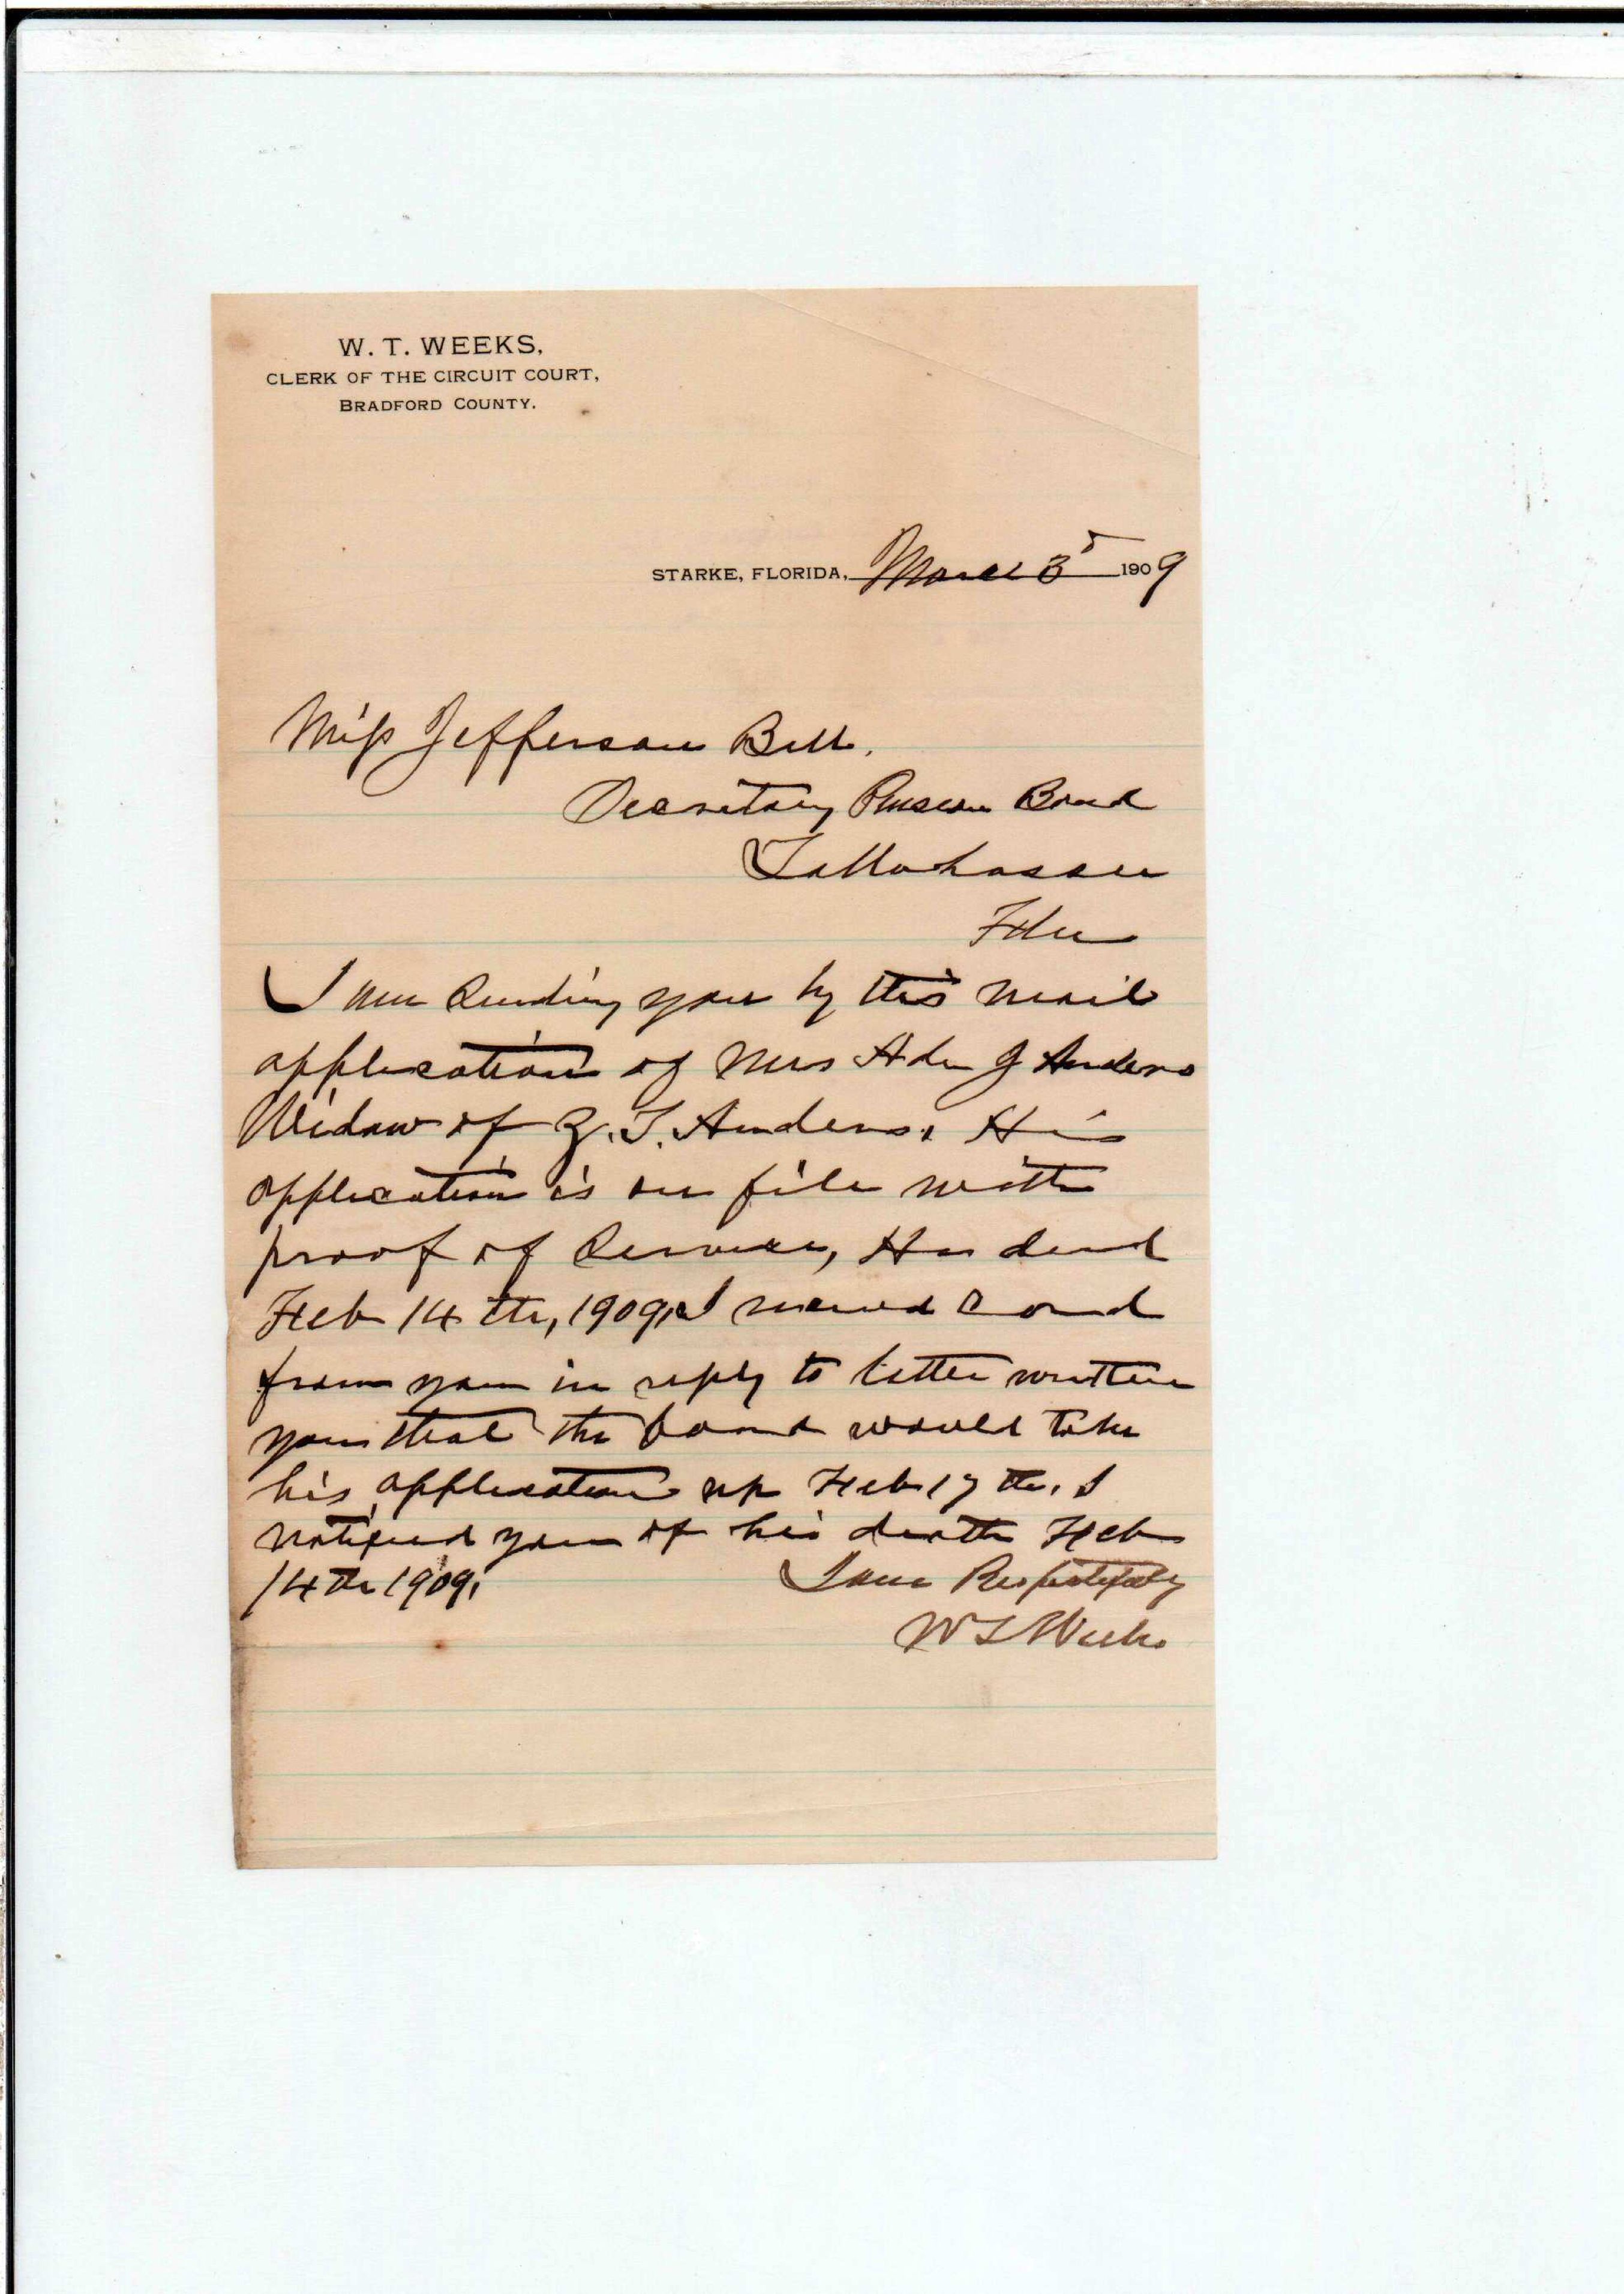 W. T. WEEKS,
CLERK OF THE CIRCUIT COURT,
BRADFORD COUNTY.
STARKE, FLORIDA, March 3d 1909
Miss Jefferson Bell.
Secretary Pension Board
Tallahassee
Fla
I am Sending you by this mail
application of Mrs Ada J Anders
Widow of Z. T. Anders. His
application is on file with
proof of Service, He died
Feb 14th, 1909, I received Card
from you in reply to letter written
you that the board would take
his application up Feb 17th. I
notified you of his death Feb
14th 1909.
I am Respectfully
W T Weeks